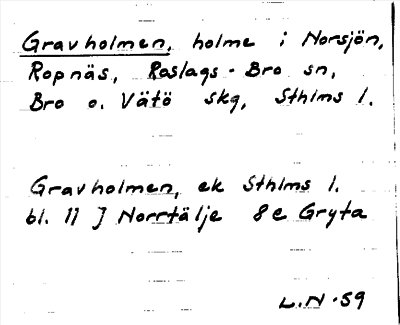 Gravholmen, holme i Norsjön,
Ropnäs, Roslags-Bro sn,
Bro o. Vätö skg, Sthlms l.
Gravholmen, ek Sthlms l.
bl. 11 J Norrtälje 8e Gryta
L.N-59